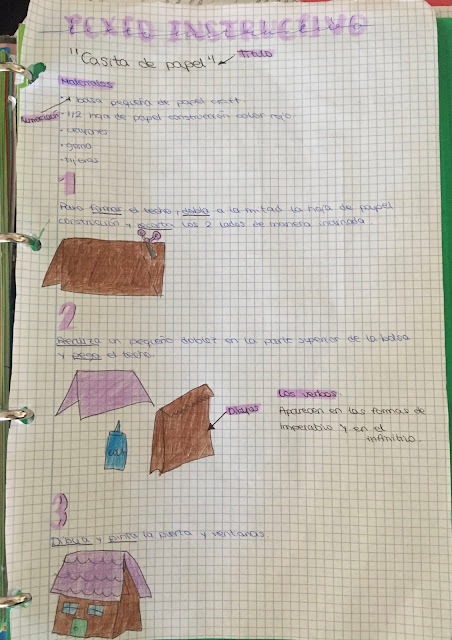 TEXTO INSTRUCTIVO
"Casita de papel" Título
Materiales
• 1 bolsa pequeña de papel craft
Numeración • 1/2 hoja de papel construcción color rojo
• crayones
• goma
• tijeras
1
Para formar el techo, dobla a la mitad la hoja de papel
construcción y recorta los 2 lados de manera inclinada.
2
Realiza un pequeño doblez en la parte superior de la bolsa
y pega el techo.
Los verbos
Dibujos Aparecen en las formas de
Imperativo y en el
infinitivo.
3
Dibuja y pinta la puerta y ventanas.